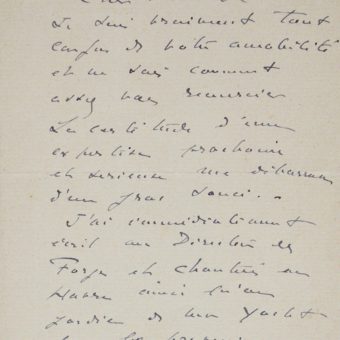 Je suis vraiment tout
confus de votre amabilité
et ne sais comment
assez vous remercier
La certitude d'une
expertise prochaine
et sérieuse me débarrasse
d'un gros souci...
J'ai immédiatement
écrit au Directeur des
Forges et Chantiers au
Havre ainsi qu'au
gardien de mon yacht